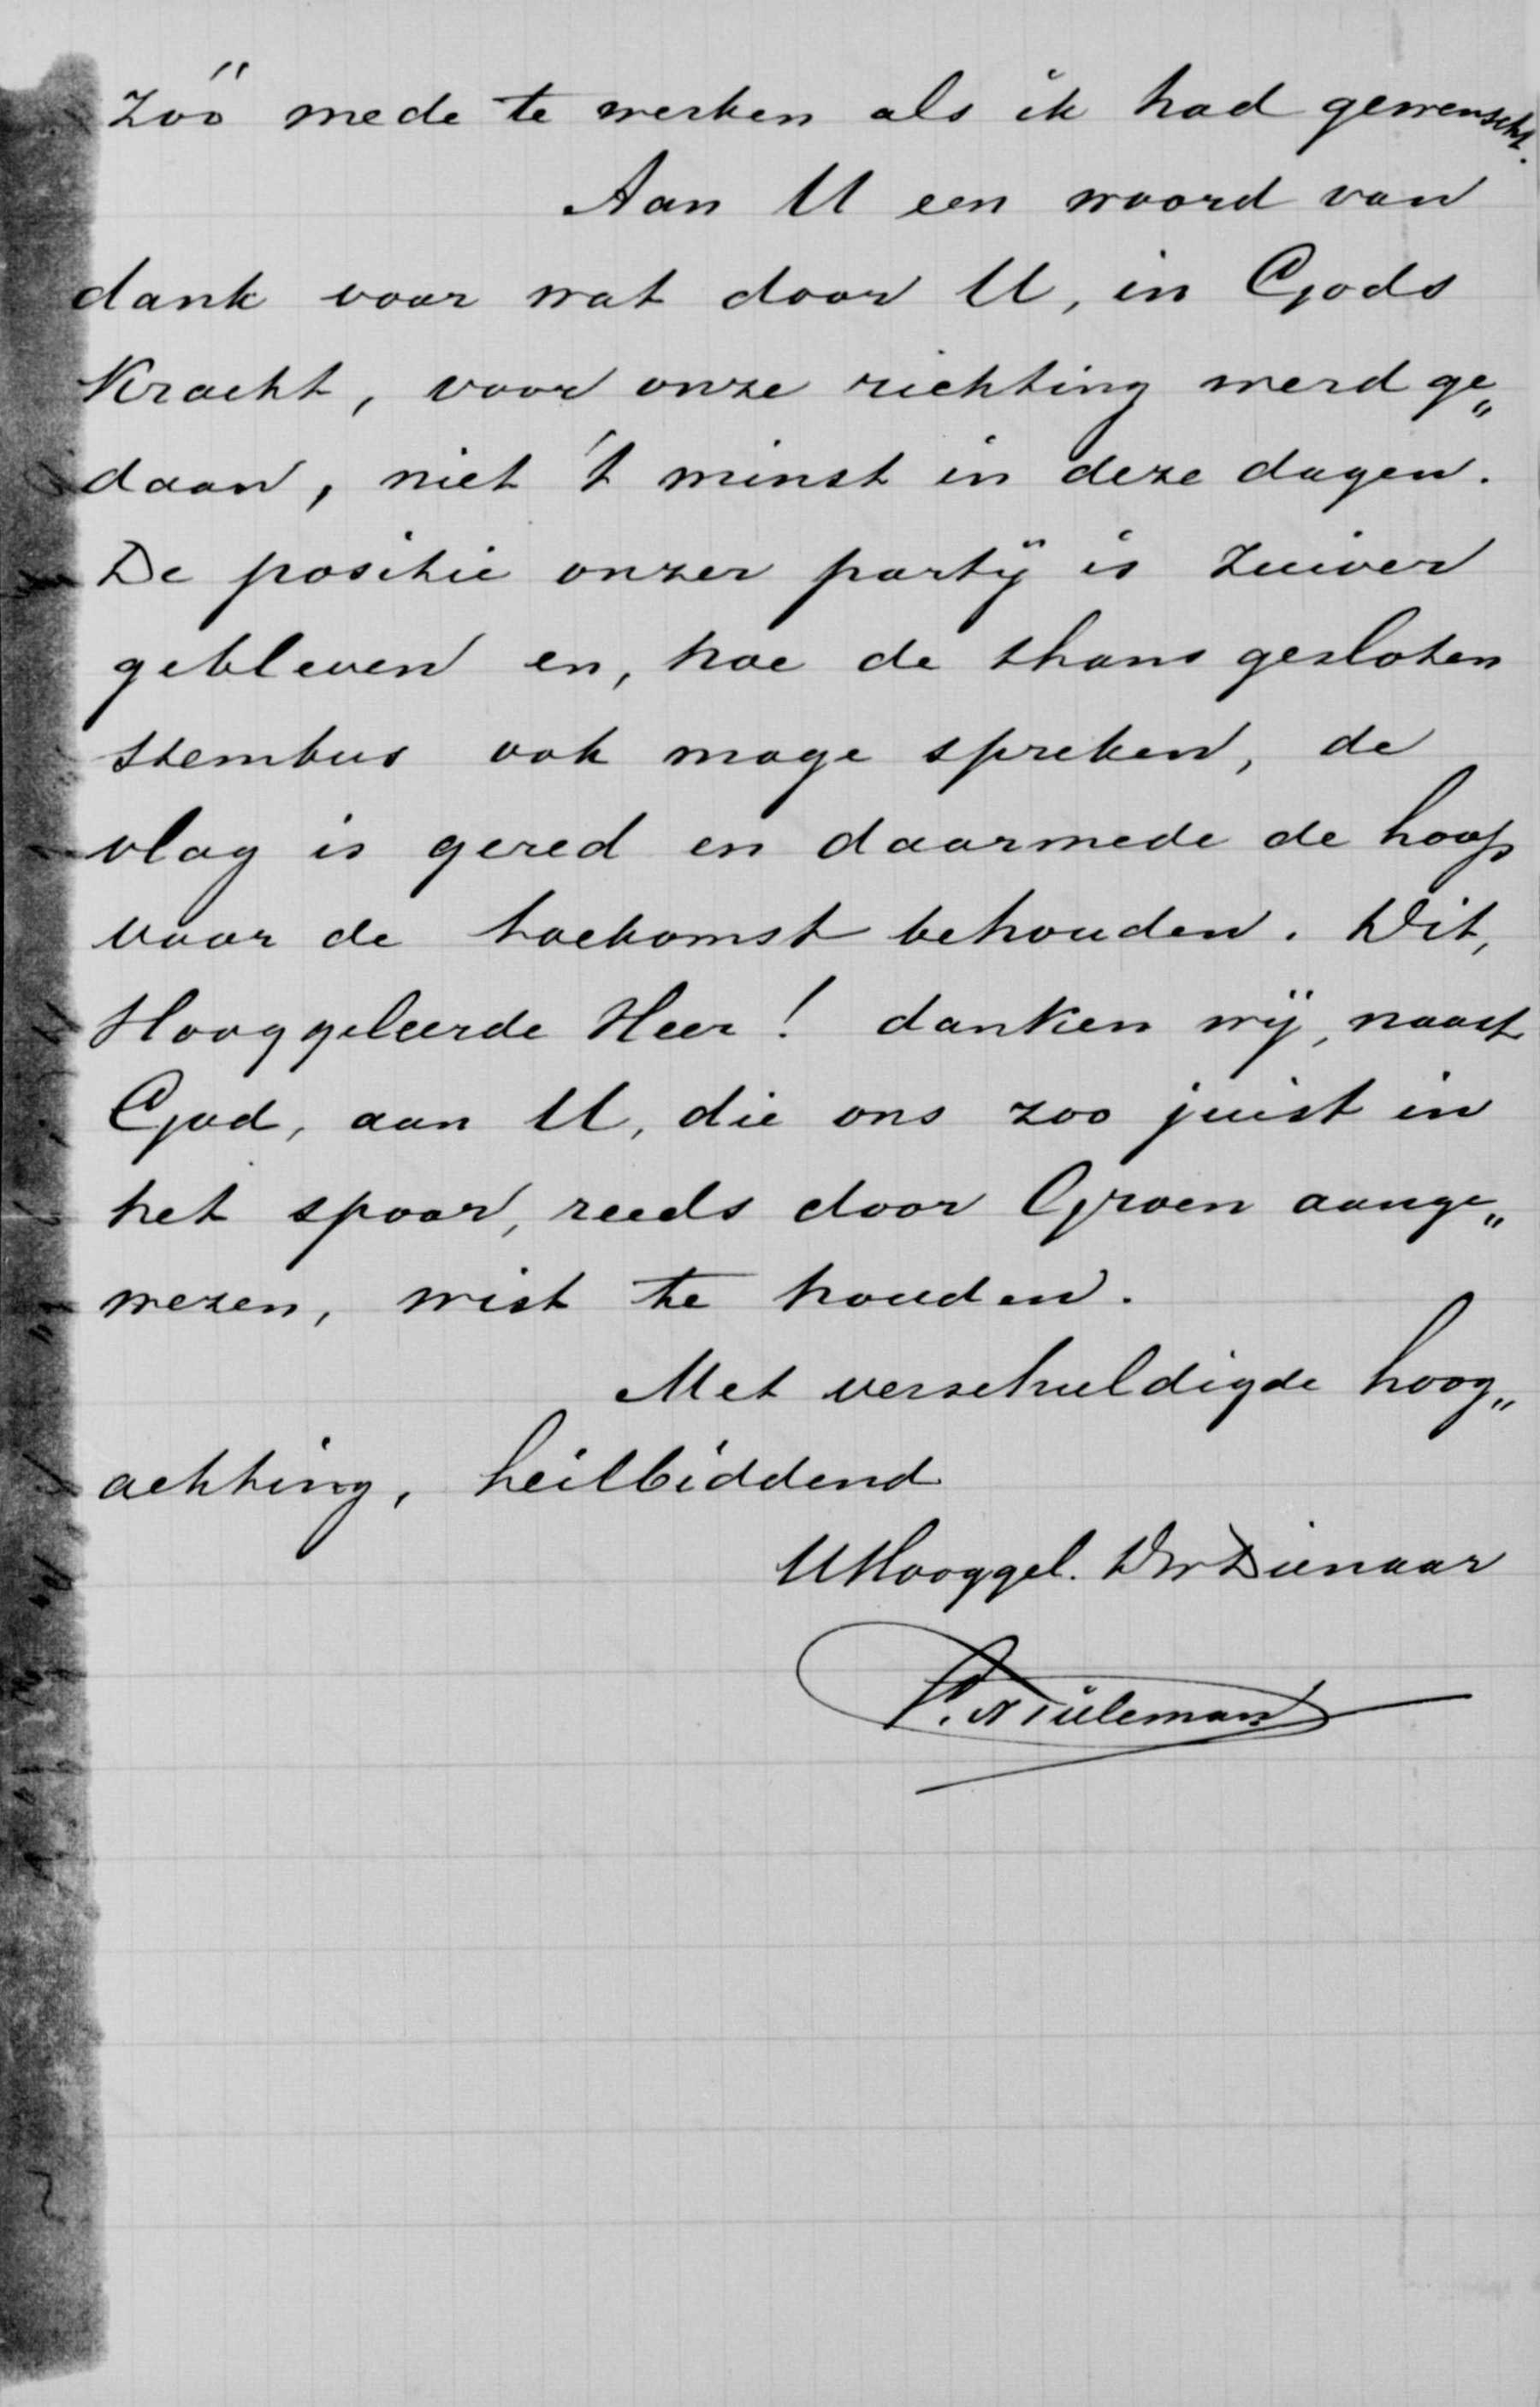 zóó mede te werken als ik had gewenscht.
Aan U een woord van
dank voor wat door U, in Gods
Kracht, voor onze richting werd ge„
daan, niet 't minst in deze dagen.
De positie onzer partij is zuiver
gebleven en, hoe de thans gesloten
stembus ook moge spreken, de
vlag is gered en daarmede de hoop
voor de toekomst behouden. Dit,
Hooggeleerde Heer! danken wij, naast
God, aan U, die ons zoo juist in
het spoor, reeds door Groen aange„
wezen, wist te houden.
Met verschuldigde hoog„
achting, heilbiddend
UHooggel. Dw Dienaar